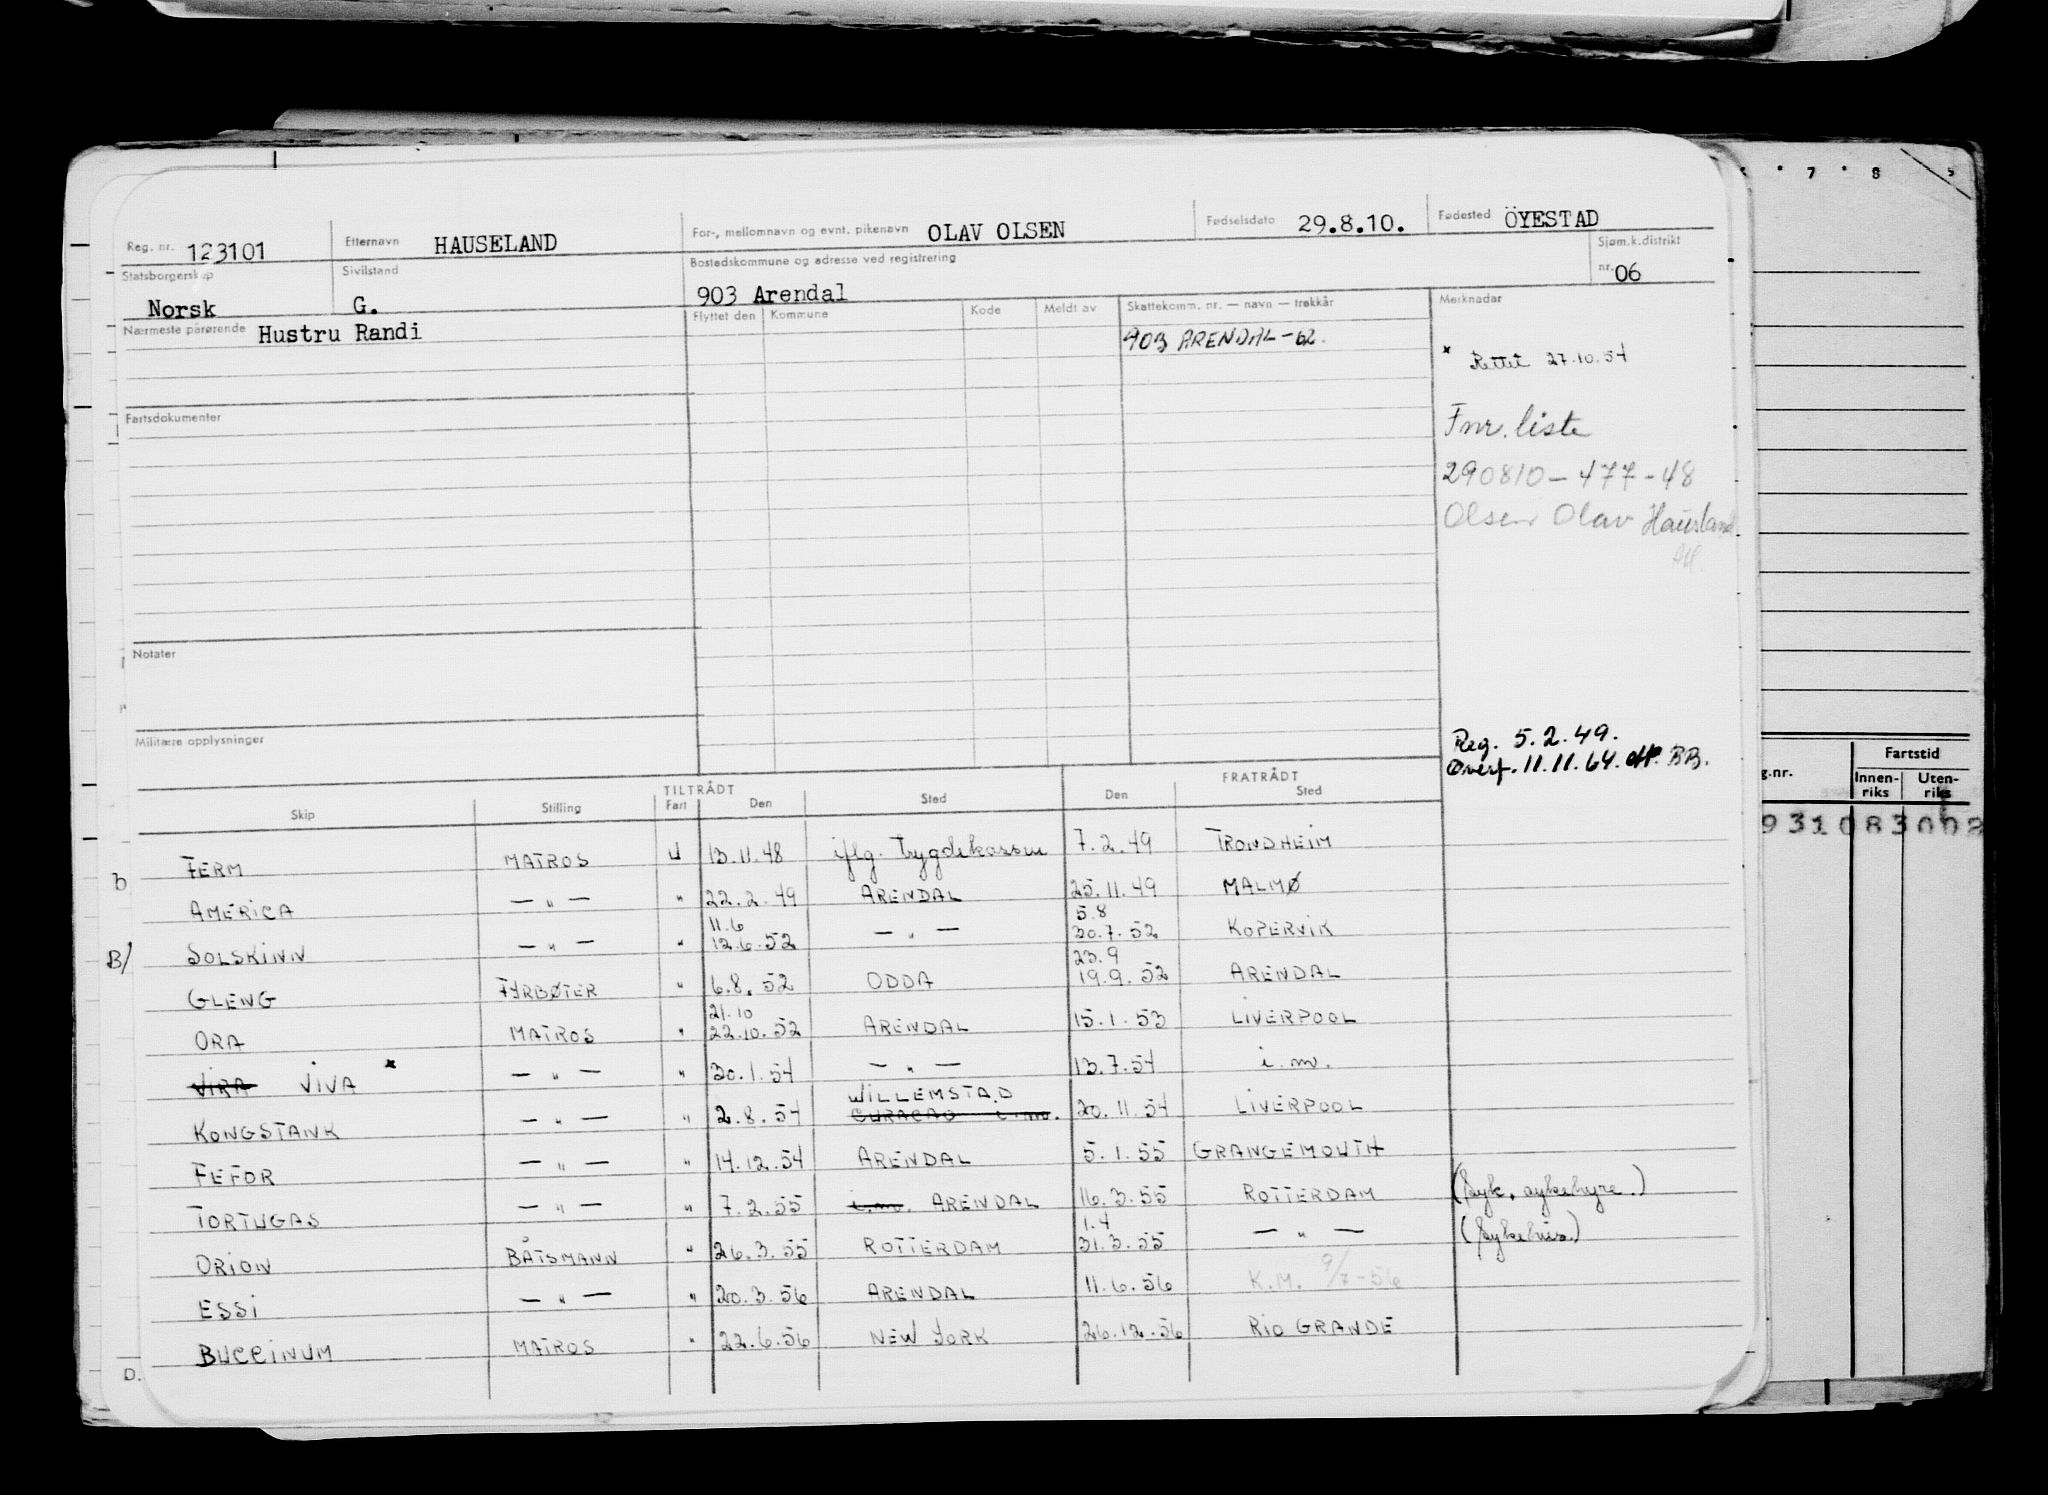 Reg. nr. 123101 Etternavn HAUSELAND For-, mellomnavn og evnt. pikenavn OLAV OLSEN Fødselsdato 29.8.10. Fødested ÖYESTAD
Statsborgerskap Norsk Sivilstand G. Bostedskommune og adresse ved registrering 903 Arendal Sjøm.k.distrikt nr. 06
Nærmeste pårørende Hustru Randi Flyttet den Kommune Kode Meldt av Skattekomm. nr. — navn — trekkår Merknader
903 ARENDAL-62.
× Rettet 27.10.54
Fartsdokumenter
Fnr. liste
290810-477-48
Olsen Olav Hausland
Notater
Militære opplysninger
Reg. 5.2.49.
Overf. 11.11.64. BB.
TILTRÅDT FRATRÅDT
Skip Stilling Fart Den Sted Den Sted
FERM MATROS U 13.11.48 iflg. trygdekassen 7.2.49 TRONDHEIM
b
AMERICA — " — " 22.2.49 ARENDAL 25.11.49 MALMØ
11.6 5.8
B/ SOLSKINN — " — " 12.6.52 — " — 30.7.52 KOPERVIK
23.9
GLENG FYRBØTER " 6.8.52 ODDA 19.9.52 ARENDAL
21.10
ORA MATROS " 22.10.52 ARENDAL 15.1.53 LIVERPOOL
VIRA VIVA × — " — " 30.1.54 — " — 13.7.54 i.m.
WILLEMSTAD
KONGSTANK — " — " 2.8.54 CURACAO i.m. 20.11.54 LIVERPOOL
FEFOR — " — " 14.12.54 ARENDAL 5.1.55 GRANGEMOUTH
TORTUGAS — " — " 7.2.55 i.m. ARENDAL 16.3.55 ROTTERDAM (Syk, sykehyre.)
1.4
ORION BÅTSMANN " 26.3.55 ROTTERDAM 31.3.55 — " — (Sykehus.)
ESSI — " — " 20.3.56 ARENDAL 11.6.56 K.M. 9/7-56
BUCCINUM MATROS " 22.6.56 NEW YORK 26.12.56 RIO GRANDE
D.
7 8
g.nr. Fartstid
Innen-riks Uten-riks